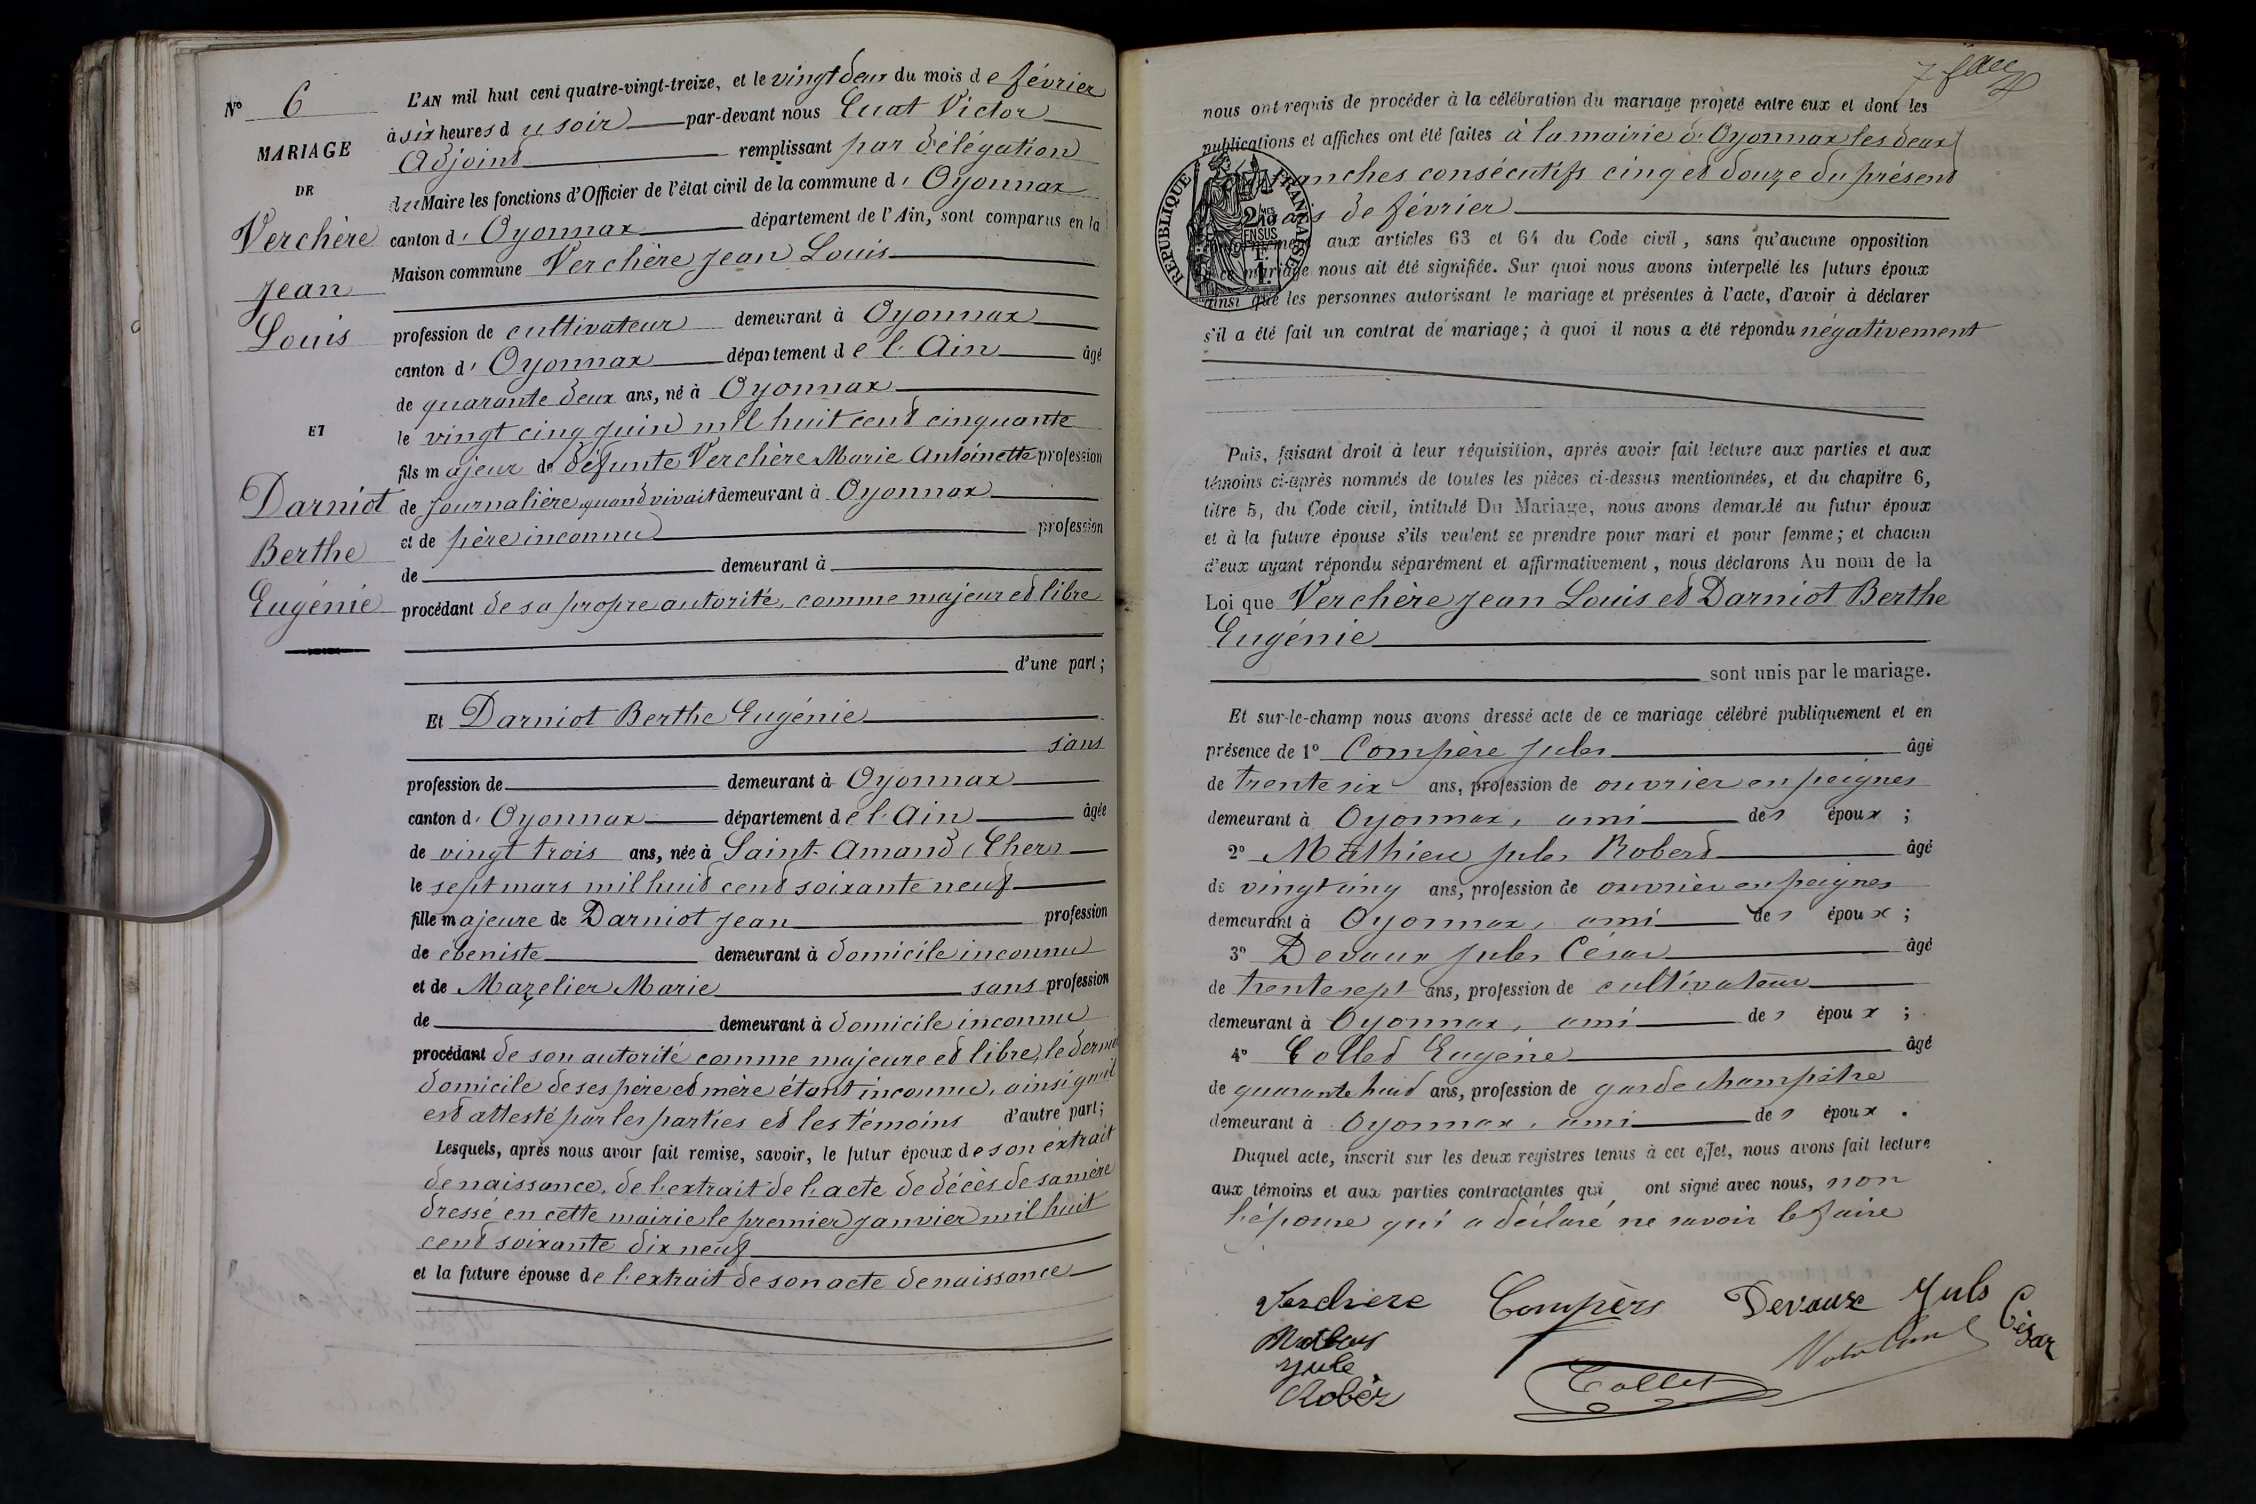 N° 6
MARIAGE
DE
Verchère
Jean
Louis
ET
Darniot
Berthe
Eugénie
L'AN mil huit cent quatre-vingt-treize, et le vingt deux du mois de février
à six heures du soir par-devant nous Cuat Victor
Adjoint remplissant par délégation
du Maire les fonctions d'Officier de l'état civil de la commune d' Oyonnax
canton d' Oyonnax département de l'Ain, sont comparus en la
Maison commune Verchère Jean Louis
profession de cultivateur demeurant à Oyonnax
canton d' Oyonnax département de l'Ain âgé
de quarante deux ans, né à Oyonnax
le vingt cinq juin mil huit cent cinquante
fils majeur de défunte Verchère Marie Antoinette profession
de journalière quand vivait demeurant à Oyonnax
et de père inconnu profession
de demeurant à
procédant de sa propre autorité, comme majeur et libre
d'une part ;
Et Darniot Berthe Eugénie
sans
profession de demeurant à Oyonnax
canton d' Oyonnax département de l'Ain âgée
de vingt trois ans, née à Saint-Amand (Cher)
le sept mars mil huit cent soixante neuf
fille majeure de Darniot Jean profession
de ébeniste demeurant à domicile inconnu
et de Mazelier Marie sans profession
de demeurant à domicile inconnu
procédant de son autorité comme majeure et libre, le dernier
domicile de ses père et mère étant inconnu, ainsi qu'il
est attesté par les parties et les témoins d'autre part ;
Lesquels, après nous avoir fait remise, savoir, le futur époux de son extrait
de naissance, de l'extrait de l'acte de décès de sa mère
dressé en cette mairie le premier janvier mil huit
cent soixante dix neuf
et la future épouse de l'extrait de son acte de naissance
nous ont requis de procéder à la célébration du mariage projeté entre eux et dont les
publications et affiches ont été faites à la mairie d'Oyonnax les deux
dimanches consécutifs cinq et douze du présent
mois de février
RÉPUBLIQUE FRANÇAISE
2/10 MES
EN SUS
1 F.
conformément aux articles 63 et 64 du Code civil, sans qu'aucune opposition
à ce mariage nous ait été signifiée. Sur quoi nous avons interpellé les futurs époux
ainsi que les personnes autorisant le mariage et présentes à l'acte, d'avoir à déclarer
s'il a été fait un contrat de mariage ; à quoi il nous a été répondu négativement
Puis, faisant droit à leur réquisition, après avoir fait lecture aux parties et aux
témoins ci-après nommés de toutes les pièces ci-dessus mentionnées, et du chapitre 6,
titre 5, du Code civil, intitulé Du Mariage, nous avons demandé au futur époux
et à la future épouse s'ils veulent se prendre pour mari et pour femme ; et chacun
d'eux ayant répondu séparément et affirmativement, nous déclarons Au nom de la
Loi que Verchère Jean Louis et Darniot Berthe
Eugénie
sont unis par le mariage.
Et sur-le-champ nous avons dressé acte de ce mariage célébré publiquement et en
présence de 1° Compère Jules âgé
de trente six ans, profession de ouvrier en peignes
demeurant à Oyonnax, ami des époux ;
2° Mathieu Jules Robert âgé
de vingt cinq ans, profession de ouvrier en peignes
demeurant à Oyonnax, ami des époux ;
3° Devaux Jules César âgé
de trente sept ans, profession de cultivateur
demeurant à Oyonnax, ami des époux ;
4° Collet Eugène âgé
de quarante huit ans, profession de garde champêtre
demeurant à Oyonnax, ami des époux.
Duquel acte, inscrit sur les deux registres tenus à cet effet, nous avons fait lecture
aux témoins et aux parties contractantes qui ont signé avec nous, non
l'épouse qui a déclaré ne savoir le faire
Verchere Compère Devaux Juls César
Jule
Robèr
Collet